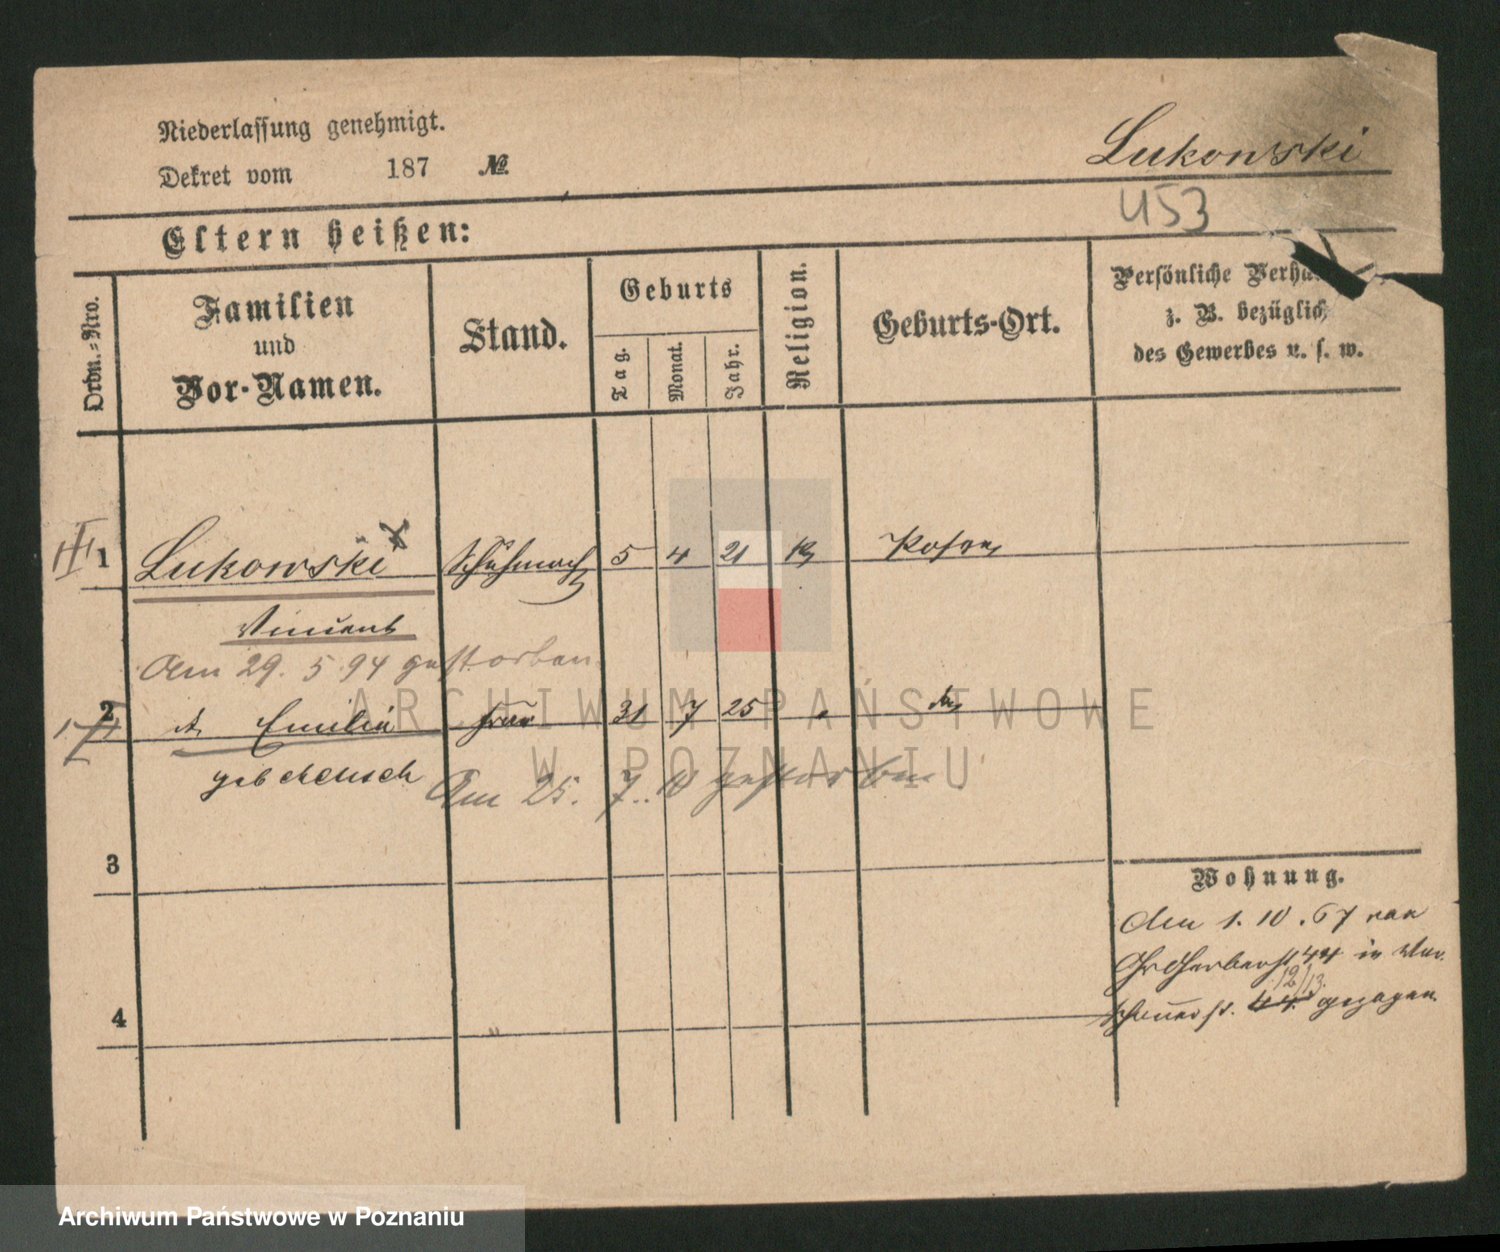 Niederlassung genehmigt.
Dekret vom 187 №
Lukowski
453
Eltern heißen:
Ordn.-Nro.
Familien
und
Vor-Namen.
Stand.
Geburts
Tag.
Monat.
Jahr.
Religion.
Geburts-Ort.
Persönliche Verhä
z. B. bezüglich
des Gewerbes u. s. w.
1 Lukowski Schuhmach 5 4 21 K Posen
Vincent
Am 29. 5. 94 gestorben
2 Emilie Frau 31 7 25
geb
Am 25. 7. 10 gestorben.
3
Wohnung.
Am 1. 10. 67 von
44 in
12/13.
44. gezogen.
4
ARCHIWUM PAŃSTWOWE
W POZNANIU
Archiwum Państwowe w Poznaniu